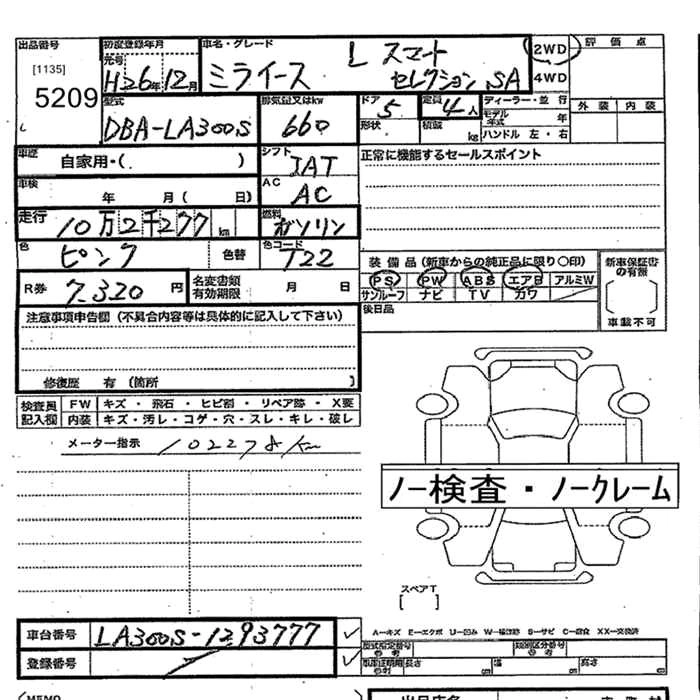 出品番号 初度登録年月 車名・グレード 評価点
[1135] 元号 H26年12月 ミライース L スマート セレクション SA 2WD
5209 4WD
型式 排気量又はkw ドア 定員 ディーラー・並行 外装 内装
DBA-LA300S 660 5 4人 モデル年式 年
形状 積載 kg ハンドル 左・右
車歴 自家用・( ) シフト IAT 正常に機能するセールスポイント
車検 年 月( 日) AC AC
走行 10万2千277km 燃料 ガソリン
色 ピンク 色替 色コード T22 装備品(新車からの純正品に限り〇印) 新車保証書の有無
R券 7,320円 名変書類有効期限 月 日 PS PW ABS エアB アルミW
サンルーフ ナビ TV カワ
後日品 車載不可
注意事項申告欄(不具合内容等は具体的に記入して下さい)
修復歴 有(箇所 )
検査員 FW キズ・飛石・ヒビ割・リペア跡・X要
記入欄 内装 キズ・汚レ・コゲ・穴・スレ・キレ・破レ
メーター指示 102278km
ノー検査・ノークレーム
スペアT
[ ]
車台番号 LA300S-1293777 A-キズ E-エクボ U-凹み W-補修跡 S-サビ C-腐食 XX-交換済
型式指定番号 類別区分番号
登録番号 長さ cm 幅 cm 高さ cm
MEMO 出品店名